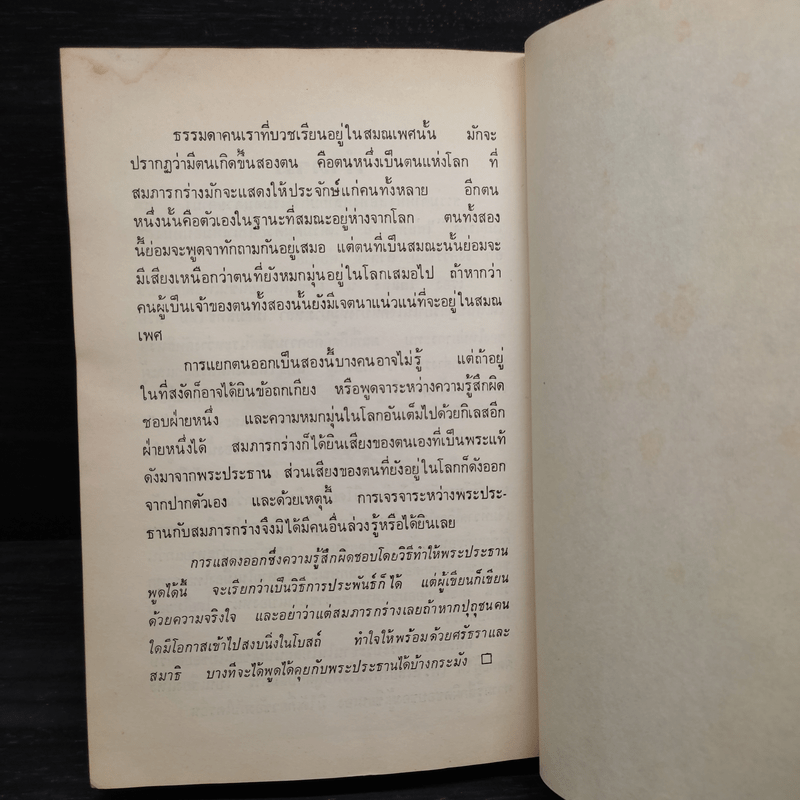 ธรรมดาคนเราที่บวชเรียนอยู่ในสมณเพศนั้น มักจะ
ปรากฏว่ามีตนเกิดขึ้นสองตน คือตนหนึ่งเป็นตนแห่งโลก ที่
สมภารกร่างมักจะแสดงให้ประจักษ์แก่คนทั้งหลาย อีกตน
หนึ่งนั้นคือตัวเองในฐานะที่สมณะอยู่ห่างจากโลก ตนทั้งสอง
นี้ย่อมจะพูดจาทักถามกันอยู่เสมอ แต่ตนที่เป็นสมณะนั้นย่อมจะ
มีเสียงเหนือกว่าตนที่ยังหมกมุ่นอยู่ในโลกเสมอไป ถ้าหากว่า
คนผู้เป็นเจ้าของตนทั้งสองนั้นยังมีเจตนาแน่วแน่ที่จะอยู่ในสมณ
เพศ
การแยกตนออกเป็นสองนี้บางคนอาจไม่รู้ แต่ถ้าอยู่
ในที่สงัดก็อาจได้ยินข้อถกเกียง หรือพูดจาระหว่างความรู้สึกผิด
ชอบฝ่ายหนึ่ง และความหมกมุ่นในโลกอันเต็มไปด้วยกิเลสอีก
ฝ่ายหนึ่งได้ สมภารกร่างก็ได้ยินเสียงของตนเองที่เป็นพระแท้
ดังมาจากพระประธาน ส่วนเสียงของตนที่ยังอยู่ในโลกก็ดังออก
จากปากตัวเอง และด้วยเหตุนี้ การเจรจาระหว่างพระประ-
ธานกับสมภารกร่างจึงมิได้มีคนอื่นล่วงรู้หรือได้ยินเลย
การแสดงออกซึ่งความรู้สึกผิดชอบโดยวิธีทำให้พระประธาน
พูดได้นี้ จะเรียกว่าเป็นวิธีการประพันธ์ก็ได้ แต่ผู้เขียนก็เขียน
ด้วยความจริงใจ และอย่าว่าแต่สมภารกร่างเลยถ้าหากปุถุชนคน
ใดมีโอกาสเข้าไปสงบนิ่งในโบสถ์ ทำใจให้พร้อมด้วยศรัธราและ
สมาธิ บางทีจะได้พูดได้คุยกับพระประธานได้บ้างกระมัง □